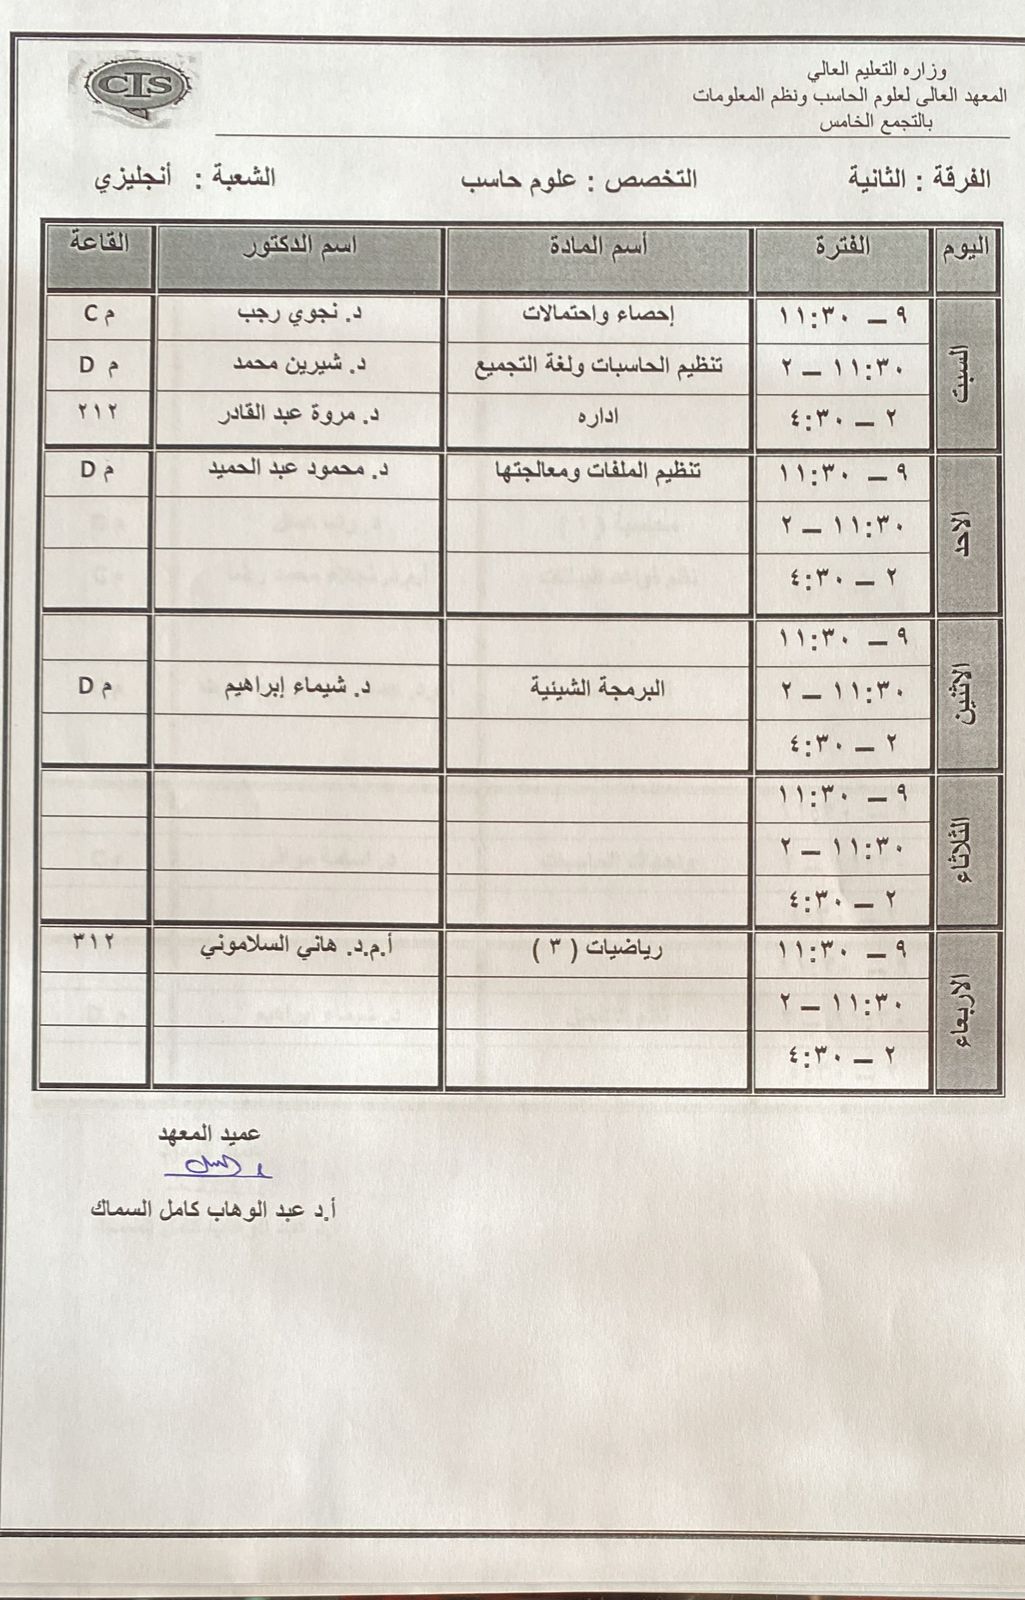 وزاره التعليم العالي
المعهد العالى لعلوم الحاسب ونظم المعلومات
بالتجمع الخامس
CIS
الفرقة : الثانية التخصص : علوم حاسب الشعبة : أنجليزي
اليوم الفترة أسم المادة اسم الدكتور القاعة
السبت
٩ – ١١:٣٠ إحصاء واحتمالات د. نجوي رجب م C
١١:٣٠ – ٢ تنظيم الحاسبات ولغة التجميع د. شيرين محمد م D
٢ – ٤:٣٠ اداره د. مروة عبد القادر ٢١٢
الاحد
٩ – ١١:٣٠ تنظيم الملفات ومعالجتها د. محمود عبد الحميد م D
١١:٣٠ – ٢
٢ – ٤:٣٠
الاثنين
٩ – ١١:٣٠
١١:٣٠ – ٢ البرمجة الشيئية د. شيماء إبراهيم م D
٢ – ٤:٣٠
الثلاثاء
٩ – ١١:٣٠
١١:٣٠ – ٢
٢ – ٤:٣٠
الاربعاء
٩ – ١١:٣٠ رياضيات ( ٣ ) أ.م.د. هاني السلاموني ٣١٢
١١:٣٠ – ٢
٢ – ٤:٣٠
عميد المعهد
أ.د عبد الوهاب كامل السماك